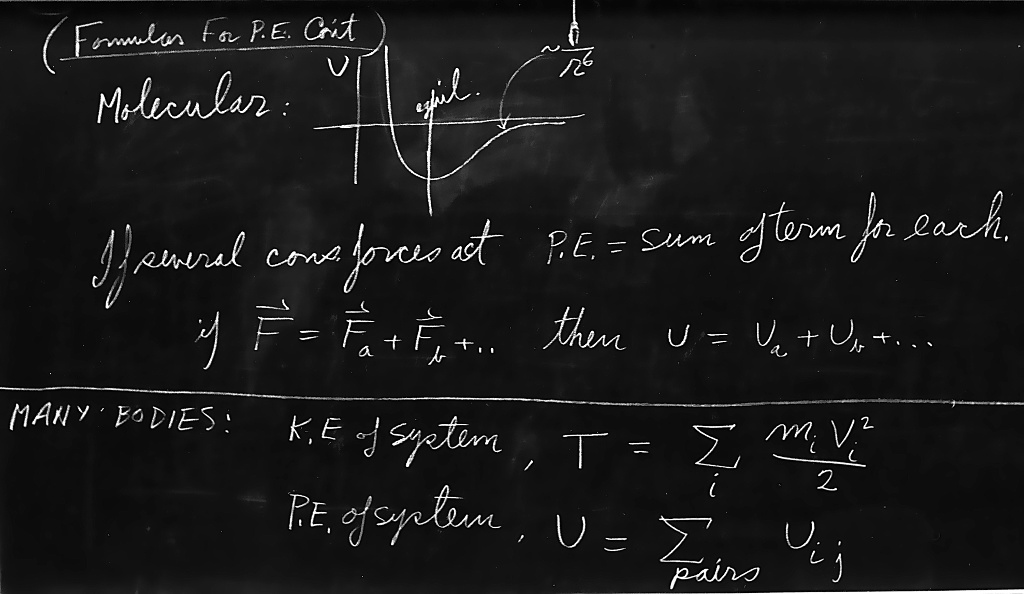 (Formulas For P.E. Con't)
U
~ 1/r⁶
Molecular:
equil.
If several cons. forces act P.E. = sum of term for each.
if F⃗ = F⃗a + F⃗b + .. then U = Ua + Ub + ...
MANY BODIES:
K.E of system, T = Σi miVi²/2
P.E. of system, U = Σpairs Uij